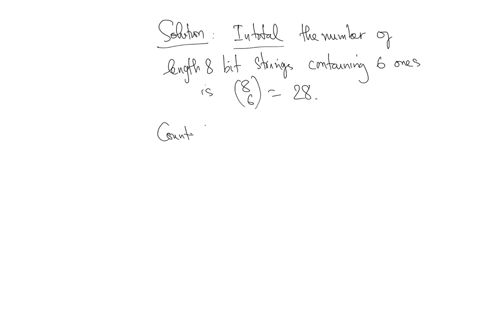 Solution: In total the number of
length 8 bit strings containing 6 ones
is (8 6) = 28.
Count